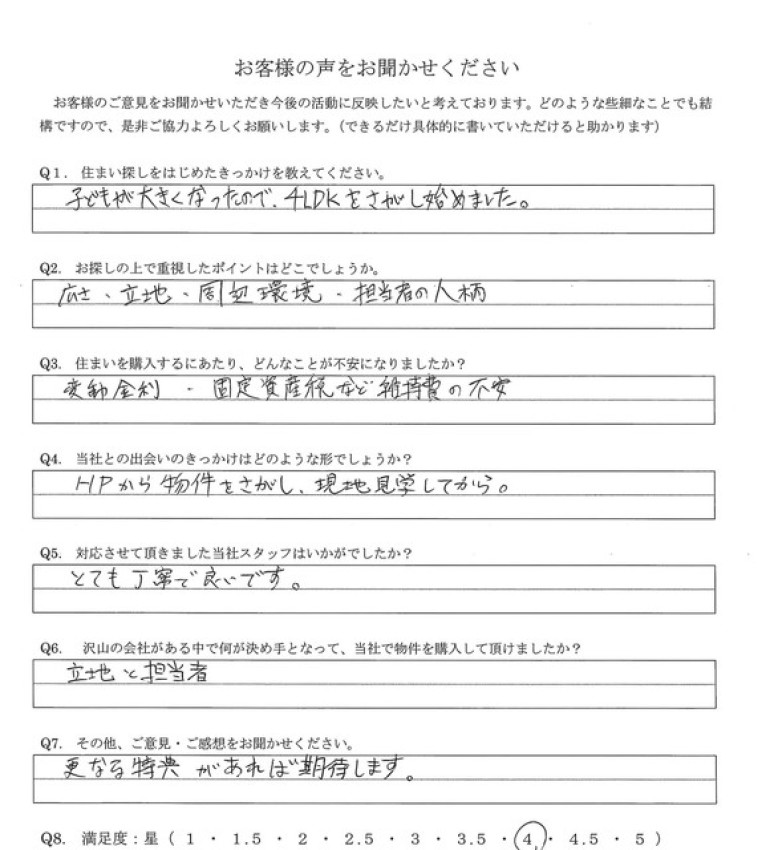 お客様の声をお聞かせください
お客様のご意見をお聞かせいただき今後の活動に反映したいと考えております。どのような些細なことでも結
構ですので、是非ご協力よろしくお願いします。（できるだけ具体的に書いていただけると助かります）
Q1. 住まい探しをはじめたきっかけを教えてください。
子どもが大きくなったので、4LDKをさがし始めました。
Q2. お探しの上で重視したポイントはどこでしょうか。
広さ、立地、周辺環境、担当者の人柄
Q3. 住まいを購入するにあたり、どんなことが不安になりましたか？
変動金利・固定資産税など維持費の不安
Q4. 当社との出会いのきっかけはどのような形でしょうか？
HPから物件をさがし、現地見学してから。
Q5. 対応させて頂きました当社スタッフはいかがでしたか？
とても丁寧で良いです。
Q6. 沢山の会社がある中で何が決め手となって、当社で物件を購入して頂けましたか？
立地と担当者
Q7. その他、ご意見・ご感想をお聞かせください。
更なる特典があれば期待します。
Q8. 満足度：星（ 1 ・ 1.5 ・ 2 ・ 2.5 ・ 3 ・ 3.5 ・ 4 ・ 4.5 ・ 5 ）